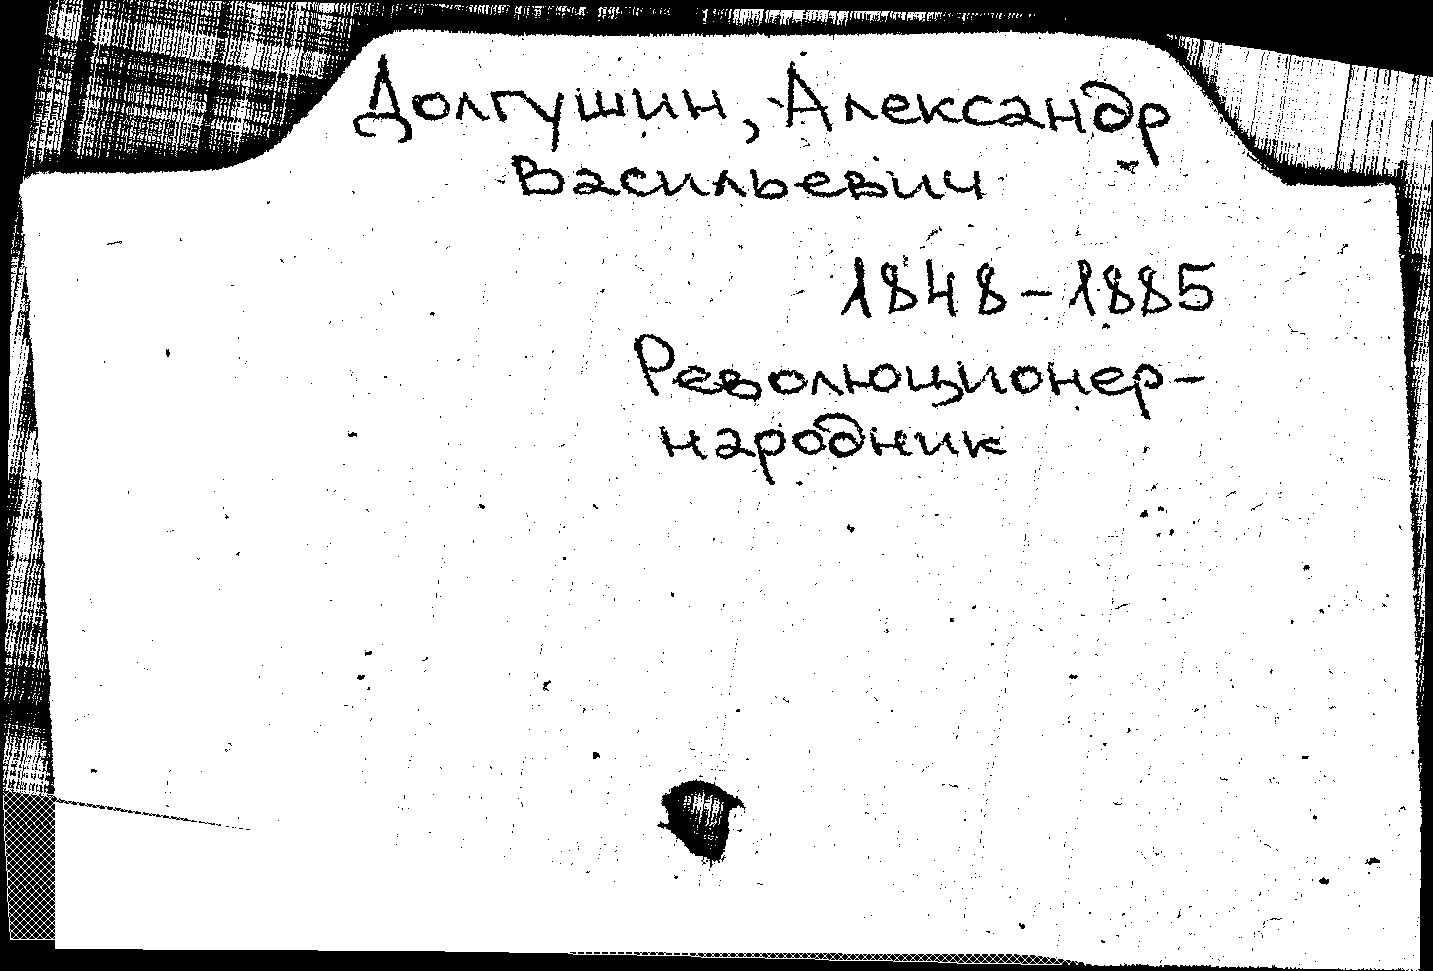 Долгушин, Александр
Васильевич
1848-1885
Революционер-
народник